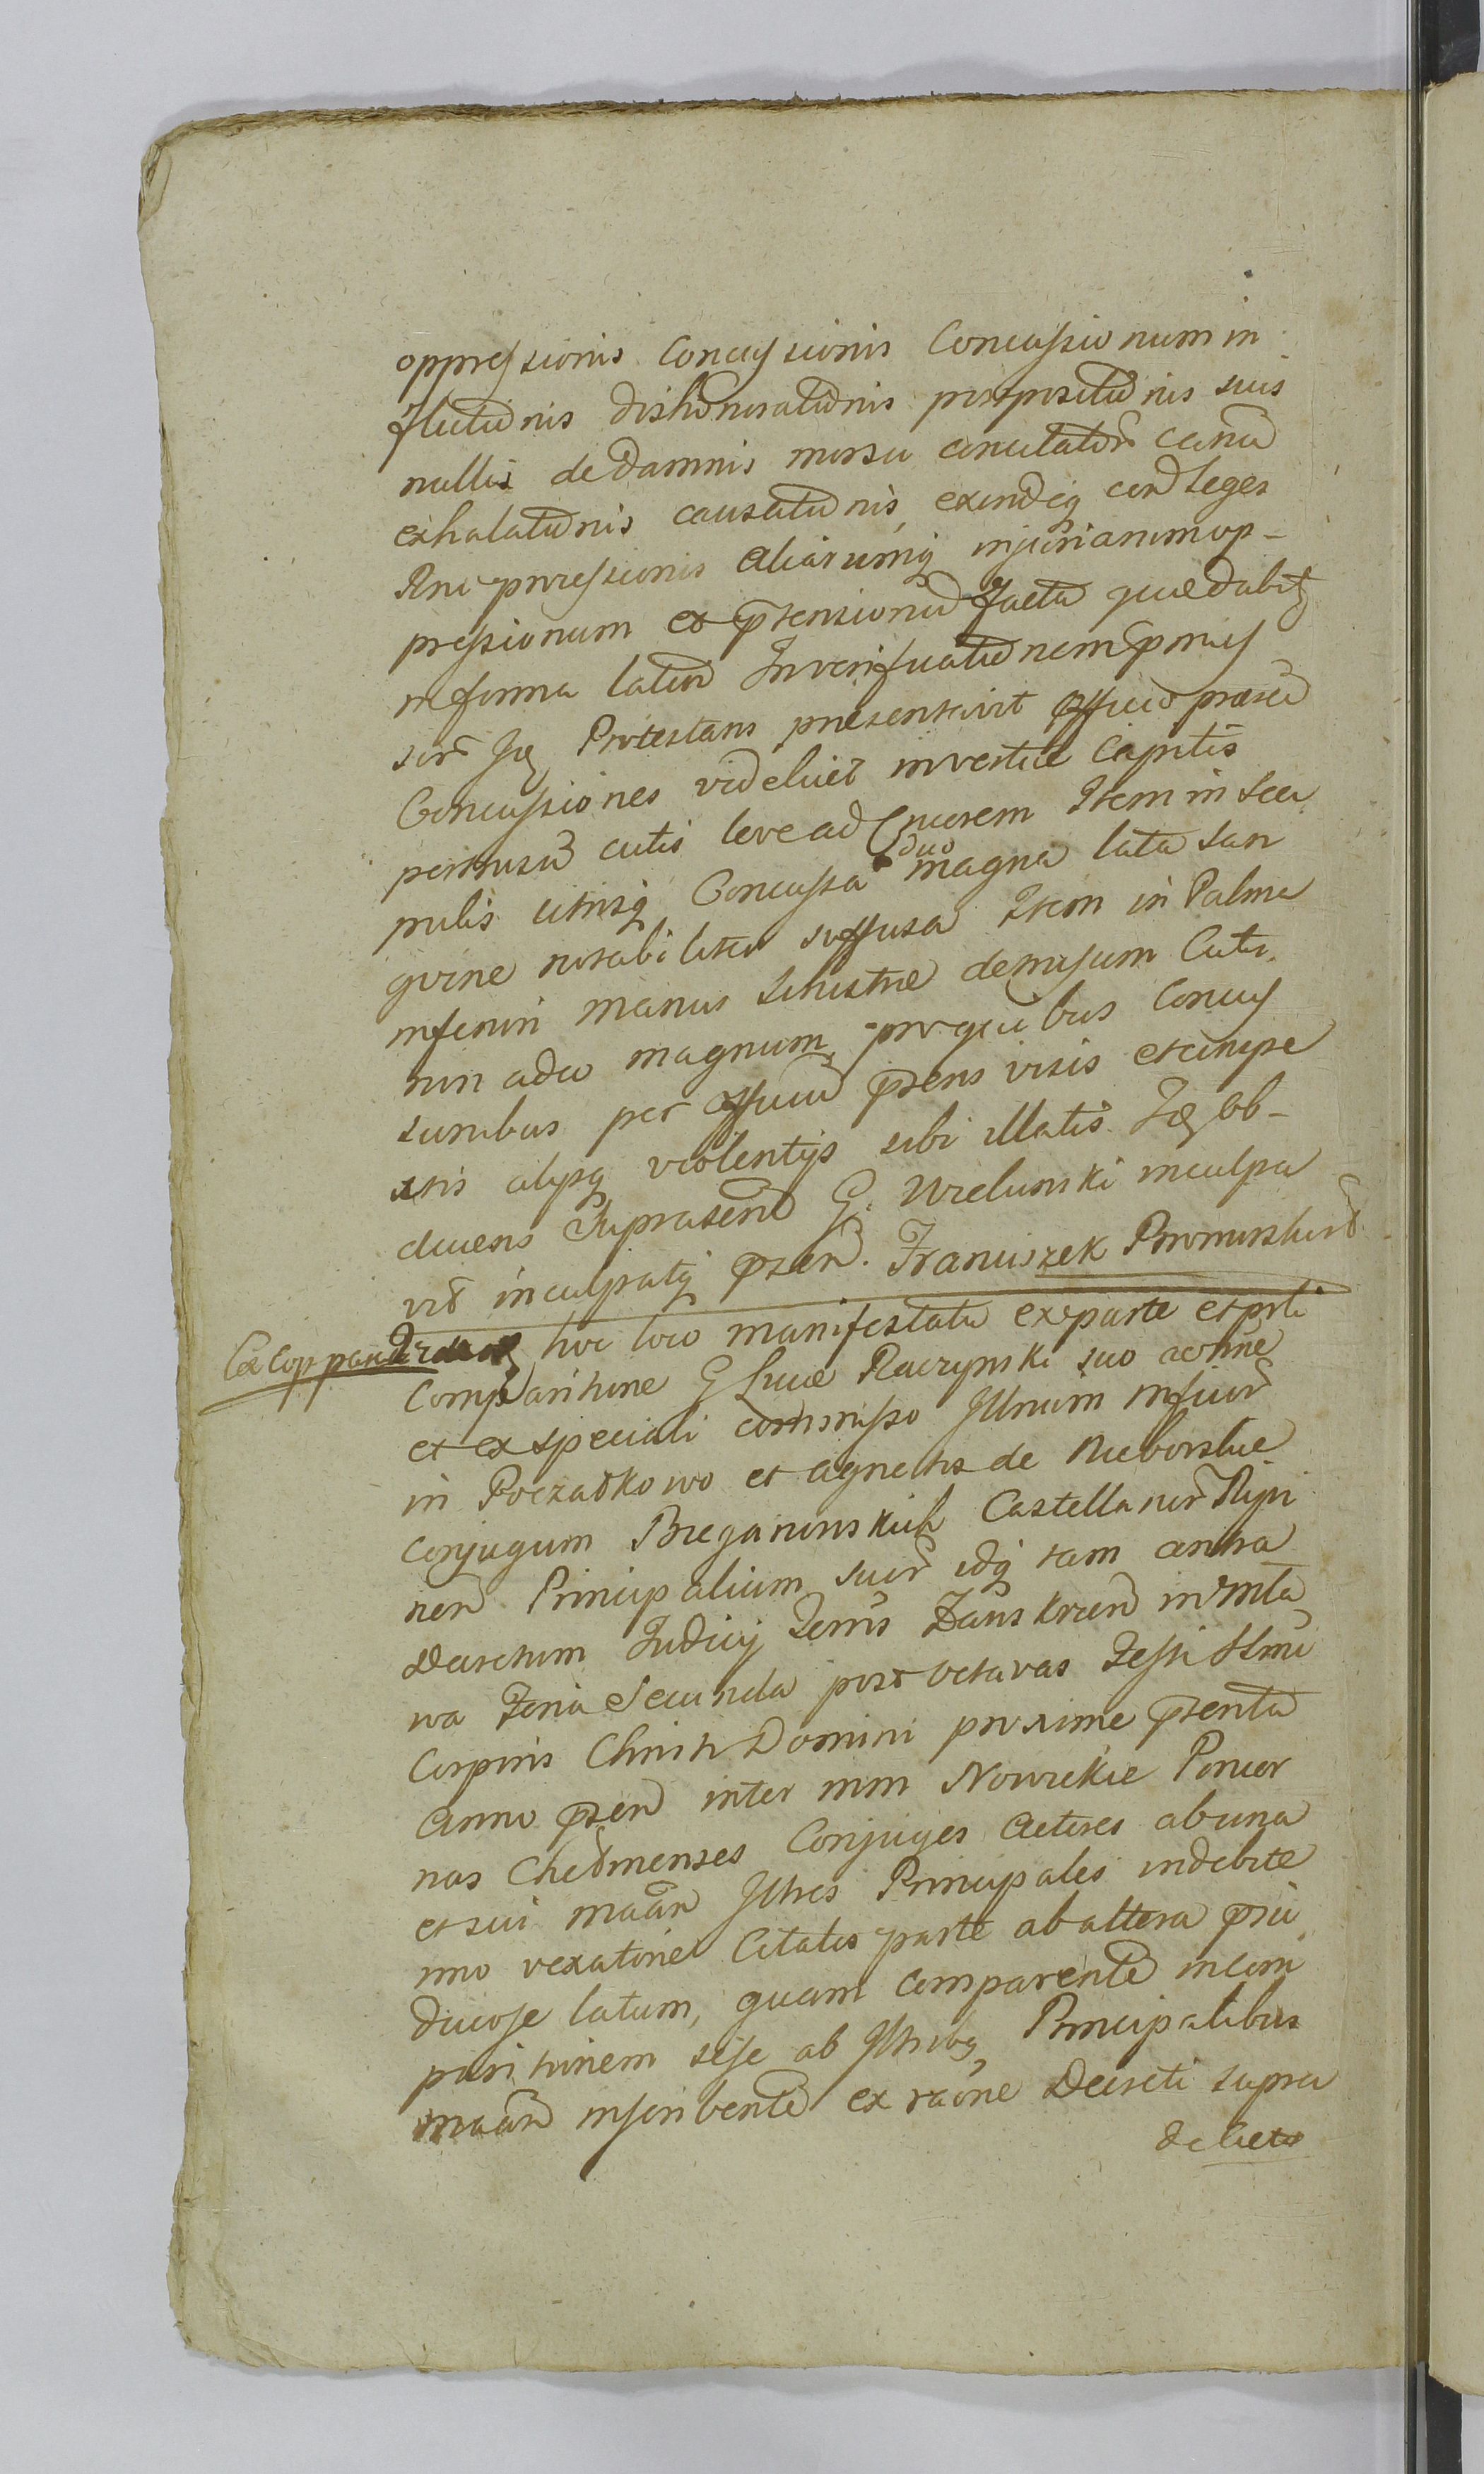 oppressionis Concussionis Concussionum in
flictionis dishonorationis postpositionis suis
nullis de damnis morsu canulator canu
exhalationis causationis exindeq contleges
Rni progressionis aliarumq injuriarum op-
pressionum et ptensionu facta quae dabit
reforma lation Inverificationem pmis
sor Jq Protestans praesentavit officio praesen
Concussiones videlicet invertice Capitis
pertusu cutis leve ad Cruorem Item in sca
pulis utrisq Concussa duo magna lata san
guine notabiliter suffusa Item in Palma
inferiri manus sinistrae demissum Cuti
rin adeo magnum, pro quibus Concus
sionibus per officiu psens visis et conspe
ctis alysq violentys sibi illatis Jq ob-
ducens Suprascri G. Wielunski inculpa
vit inculpatq psen. Franciszek
hoc loco manifestatu ex parte et psti
Comparitione G Lucae Raczynski suo noine
et ex speciali commisso Illrium infior
in Poczatkowo et Agnetis de Nieborskie
Conjugum Bieganowskich Castellanor Rypi
nen Principalium suor idq tam contra
Decretum Judicy Terris Zauskoien in
wa Feria Secunda post octavas Festi Slmi
Corporis Christi Domini proxime psenta
Anno psen inter mm Nowickie Pincer
nas Chelmenses Conjuges Actores ab una
et sui maan Illres Principales indebite
imo vexatorie Citatos parte ab altera psu
diciose latum, quam comparente incom
paritionem sese ab Illribq Principalibus
maan inscribente ex raone Decreti supra
de Actu